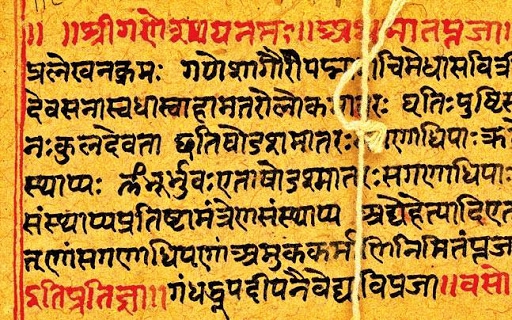 ॥ ॥श्रीगणेशायनमः॥अथमातृपूजा॥
प्रलेखनक्रमः गणेशागौरीपद्माशचिमेधासवित्री
देवसेनास्वधास्वाहामातरोलोकमातरः धृतिःपुष्टिस्
नःकुलदेवता इतिषोडशमातरः गणाधिपाःक्र
स्थाप्यः ॐभूर्भुवःएताषोडशमातरःसगणाधिपाः
संस्थाप्यप्रतिष्टामंत्रेणसंस्थाप्य अद्येहेत्यादिएत
तृणांसगणाधिपाणांअमुककर्मणिनिमितंपूजा
इतिप्रतिज्ञा॥गंधधूपदीपनैवेद्यविप्रजा॥वसो